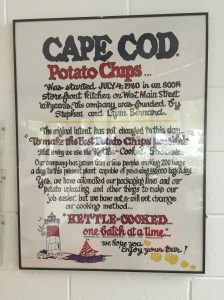 CAPE COD.
Potato Chips...
"Was started JULY 4, 1980 in an 800ft
store-front kitchen on West Main Street
Hyannis. The company was founded by
Stephen and Lynn Bernard.
The original intent has not changed to this day...
"To make the Best Potato Chips possible"
That's why we use the "Kettle-Cooked" process.
Our company has grown from a few people making 200 bags
a day to the present plant capable of producing 200,000 bags/day.
Yes, we have automated our packaging lines and our
potato unloading, and other things to make our
job easier, but we have not & will not change
our cooking method...
"KETTLE-COOKED...
one Batch at a time"~
we hope you
Enjoy your tour!